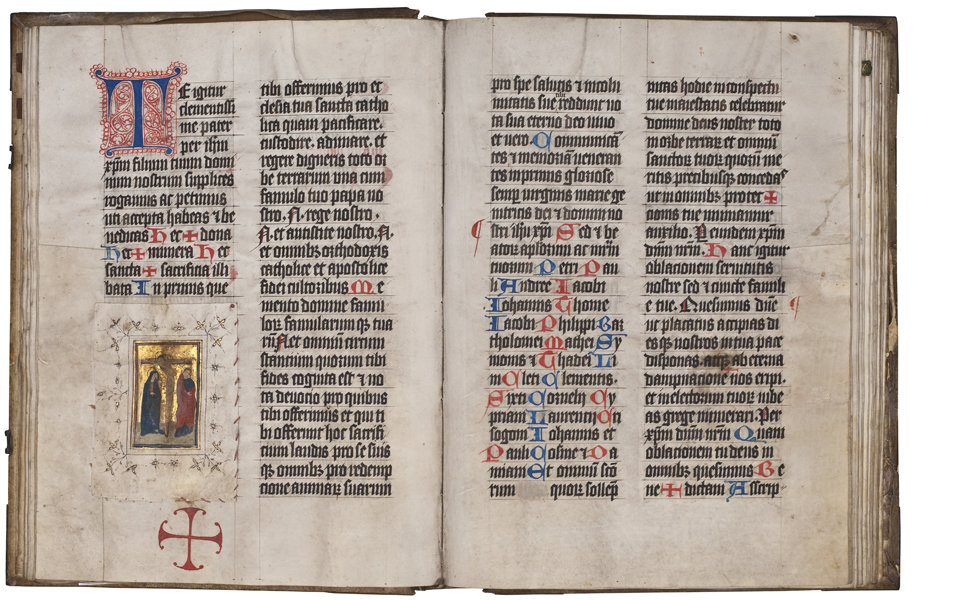 TE igitur
clementissi
me pater
per ihm
xpm filium tuum domi
num nostrum supplices
rogamus ac petimus
uti accepta habeas & be
nedicas Hec + dona
Hec + munera Hec
sancta + sacrificia illi
bata In primis que
tibi offerimus pro ec
clesia tua sancta catho
lica quam pacificare.
custodire. adunare. et
regere digneris toto or
be terrarum una cum
famulo tuo papa no
stro .N. rege nostro.
N. et antistite nostro .N.
et omnibus orthodoxis
catholice et apostolice
fidei cultoribus Me
mento domine famu
lorum famularumque tua
rum N. et omnium circum
stantium quorum tibi
fides cognita est et no
ta devotio pro quibus
tibi offerimus et qui ti
bi offerunt hoc sacrifi
cium laudis pro se suis
que omnibus pro redemp
tione animarum suarum
pro spe salutis et incolu
mitatis sue tibi reddunt uo
ta sua eterno deo uiuo
et uero. Communican
tes et memoriam ueneran
tes in primis gloriose
semper uirginis marie ge
nitricis dei et domini no
stri ihu xpi Sed et be
atorum apostolorum ac martirum
tuorum Petri Pau
li Andree Iacobi
Iohannis Thome
Iacobi Philippi Bar
tholomei Mathei Sy
monis et Thadei Li
ni Cleti Clementis.
Sixti Cornelii Cy
priani Laurencii Cri
sogoni Iohannis et
Pauli Cosme et Da
miani Et omnium sanctorum
tuorum quorum sollemp
nitas hodie in conspectu
tue maiestatis celebratur
domine deus noster toto
in orbe terrarum et omnium
sanctorum tuorum quorum me
ritis precibusque concedas
ut in omnibus protec +
tionis tue muniamur
auxilio. Per eundem xpm
dnm nrm. Hanc igitur
oblacionem seruitutis
nostre sed et cuncte famili
e tue. Quesumus dne
ut placatus accipias di
esque nostros in tua pace
disponas. atque ab eterna
dampnacione nos eripi.
et in electorum tuorum iube
as grege numerari. Per
xpm dnm nrm Quam
oblacionem tu deus in
omnibus quesumus Be
ne + dictam Ascrip